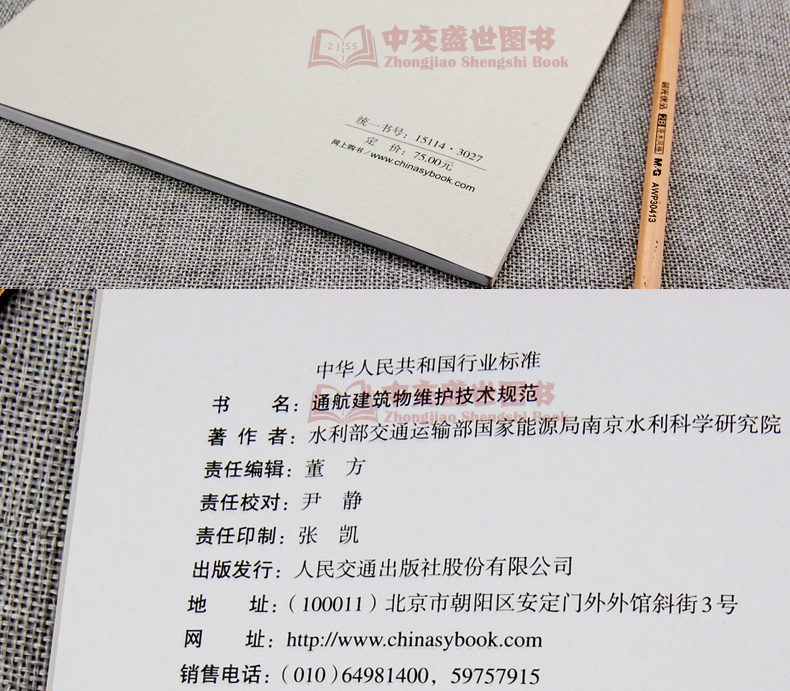 ZJSS
中交盛世图书
Zhongjiao Shengshi Book
统一书号：15114·3027
定 价：75.00元
网上购书／www.chinasybook.com
2B
M&G
AWP30413
中华人民共和国行业标准
书 名：通航建筑物维护技术规范
著 作 者：水利部交通运输部国家能源局南京水利科学研究院
责任编辑：董 方
责任校对：尹 静
责任印制：张 凯
出版发行：人民交通出版社股份有限公司
地 址：（100011）北京市朝阳区安定门外外馆斜街3号
网 址：http://www.chinasybook.com
销售电话：（010）64981400，59757915